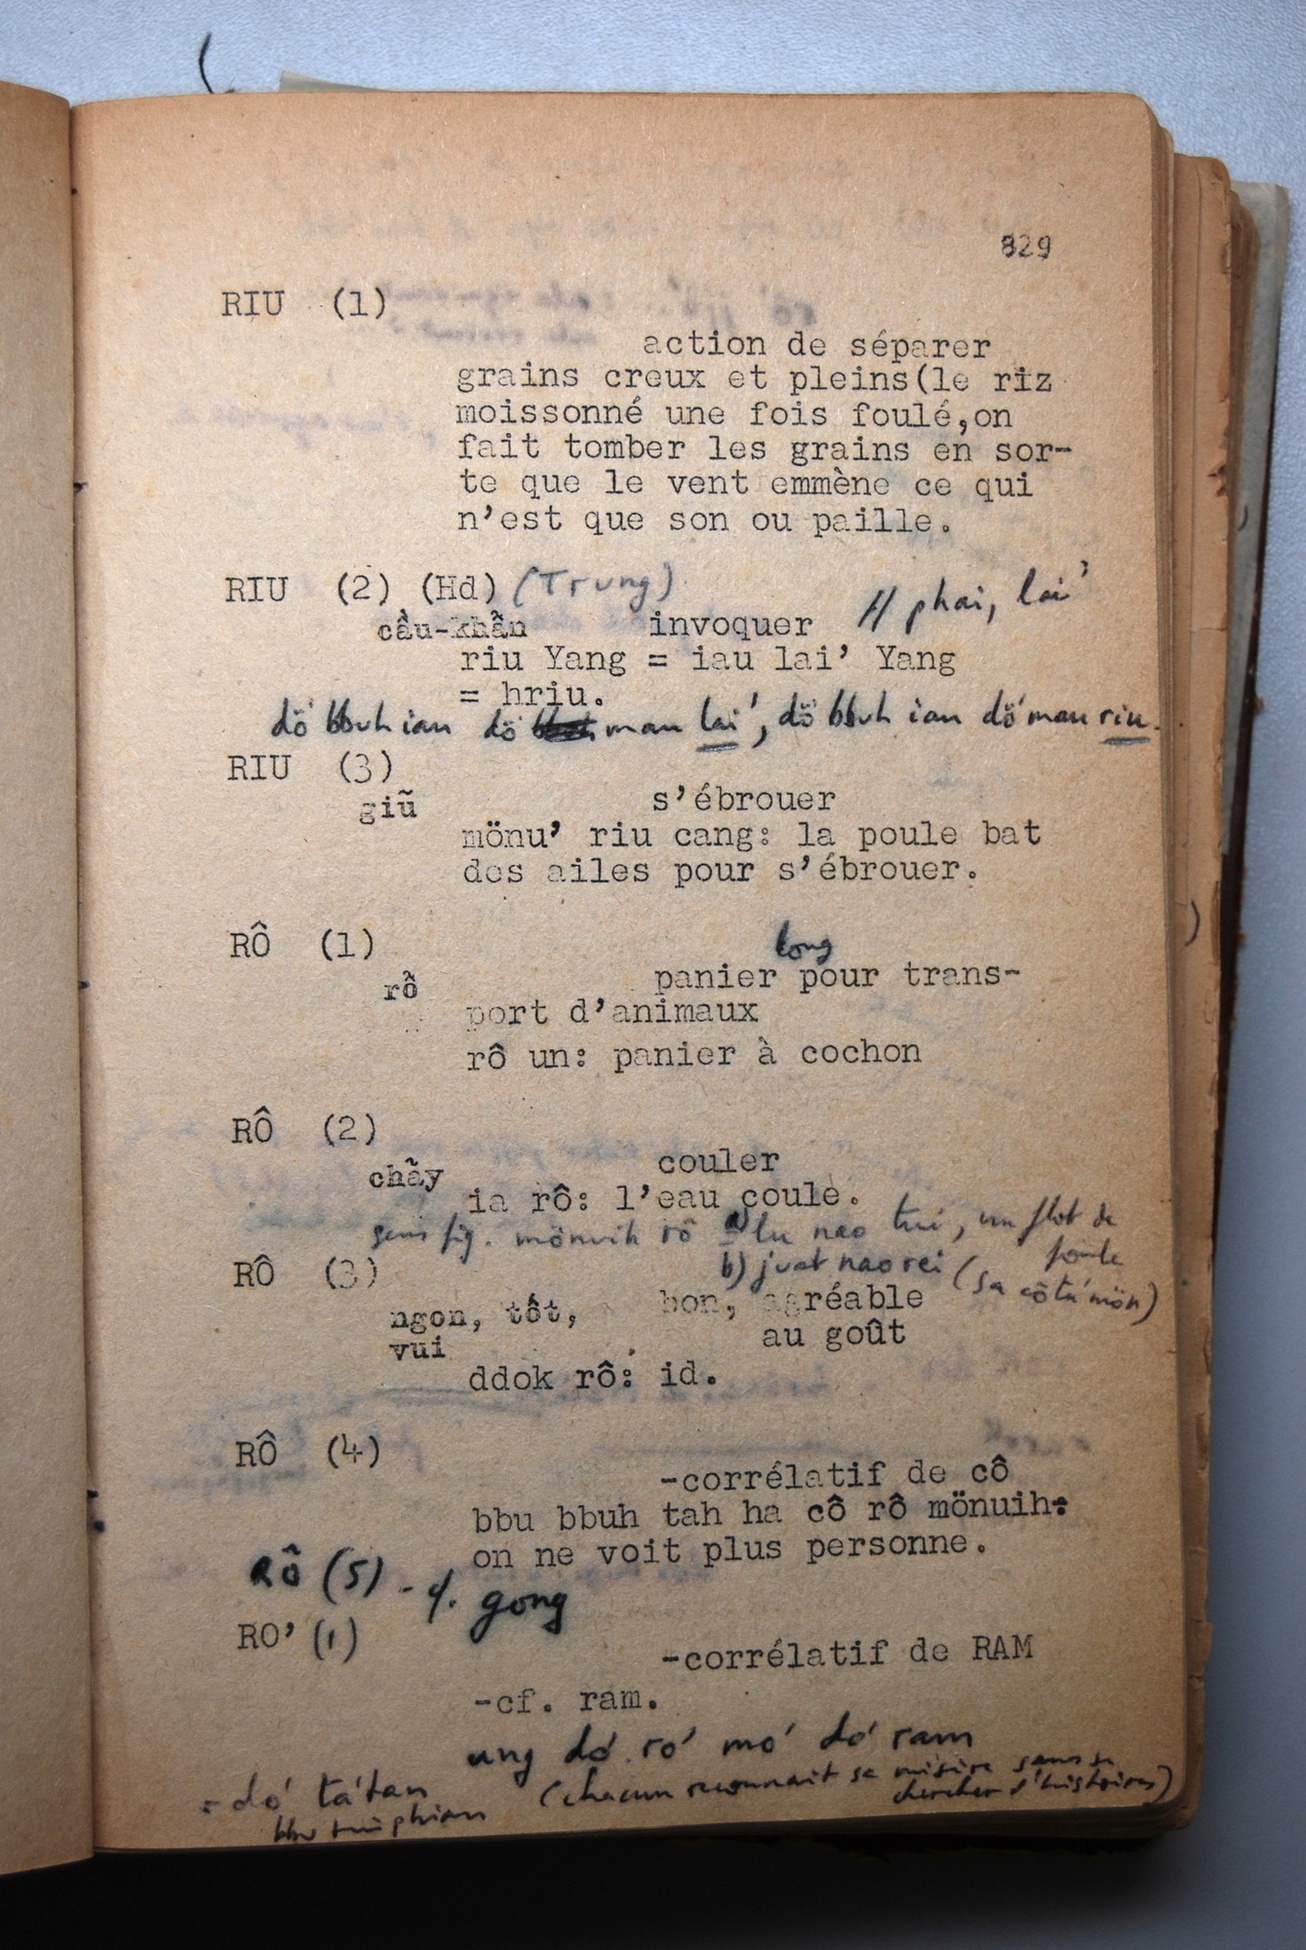 829
RIU (1)
action de séparer
grains creux et pleins(le riz
moissonné une fois foulé,on
fait tomber les grains en sor-
te que le vent emmène ce qui
n'est que son ou paille.
RIU (2) (Hd) (Trung)
cầu-khẩn invoquer // phai, lai'
riu Yang = iau lai' Yang
= hriu.
dö' bbuh iau dö' mau lai', dö' bbuh iau dö' mau riu.
RIU (3)
giũ s'ébrouer
mönu' riu cang: la poule bat
des ailes pour s'ébrouer.
RÔ (1) long
rỗ panier pour trans-
port d'animaux
rô un: panier à cochon
RÔ (2)
chãy couler
ia rô: l'eau coule.
sens fig. mönuih rô a) lu nao tui, un flot de
foule
RÔ (3) b) juat nao rei (sa côta' mön)
ngon, tốt, bon, agréable
vui au goût
ddok rô: id.
RÔ (4)
-corrélatif de cô
bbu bbuh tah ha cô rô mönuih:
on ne voit plus personne.
RÔ (5) - cf. gong
RO' (1)
-corrélatif de RAM
-cf. ram.
ung dó' ro' mo' dó' ram
= dó' ta'tan (chacun reconnait sa misère sans se
bbu phian chercher d'histoires)